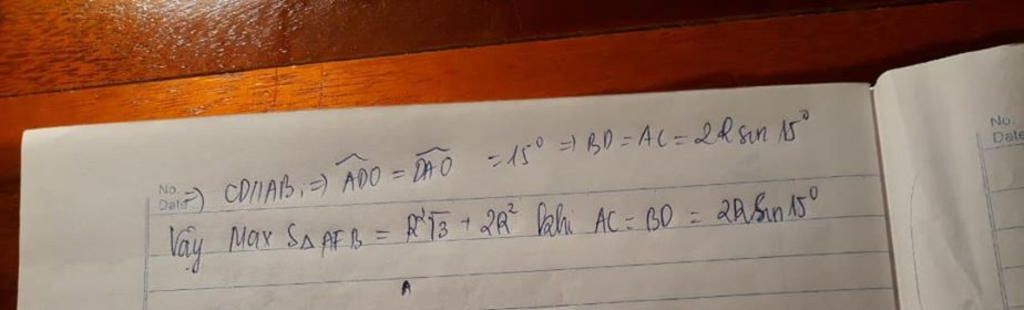 No.
Date
⇒) CD//AB, ⇒) \widehat{ADO} = \widehat{DAO} = 15⁰ ⇒ BD = AC = 2R sin 15⁰
Vậy Max S_{ΔAFB} = R²√3 + 2R² khi AC = BD = 2R sin 15⁰
A
No.
Date